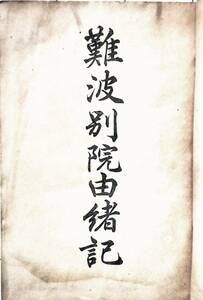 難波別院由緒記